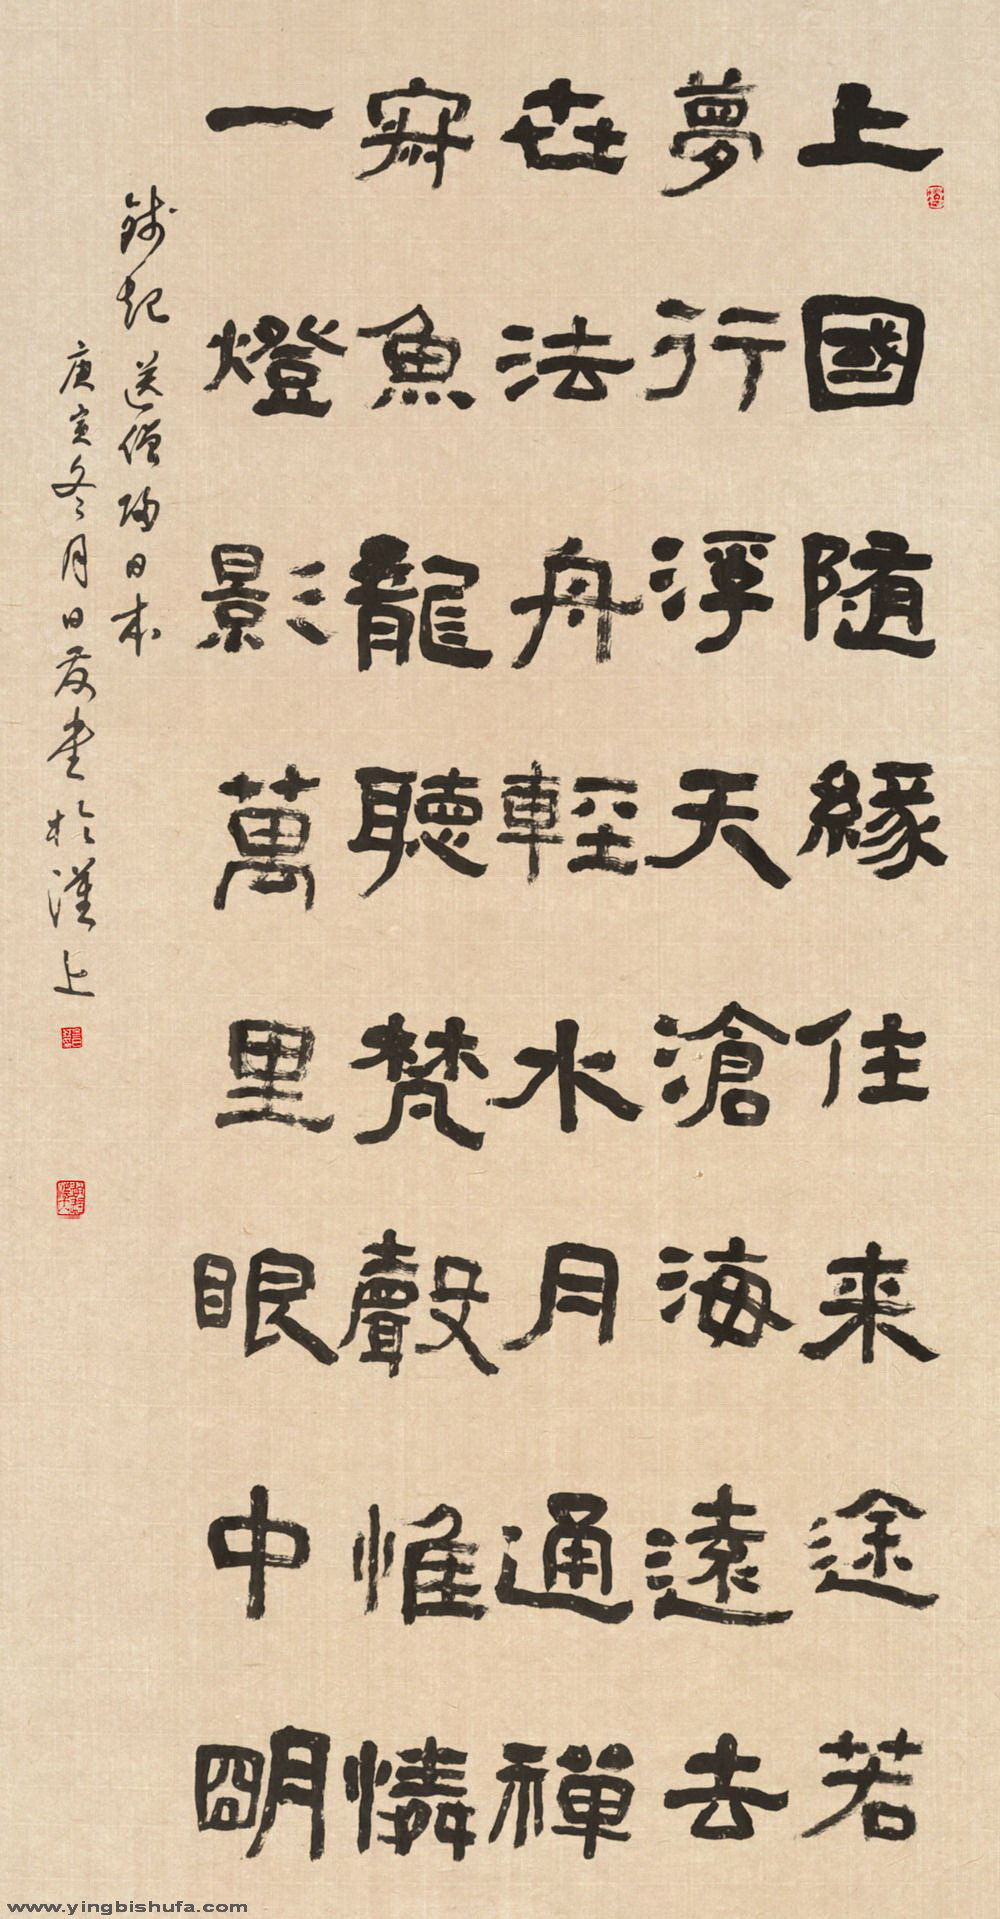 上國隨緣住来途若
夢行浮天滄海遠去
世法舟輕水月通禪
寂魚龍聽梵聲惟憐
一燈影萬里眼中明
錢起送僧歸日本
庚寅冬月日友書於漢上
www.yingbishufa.com